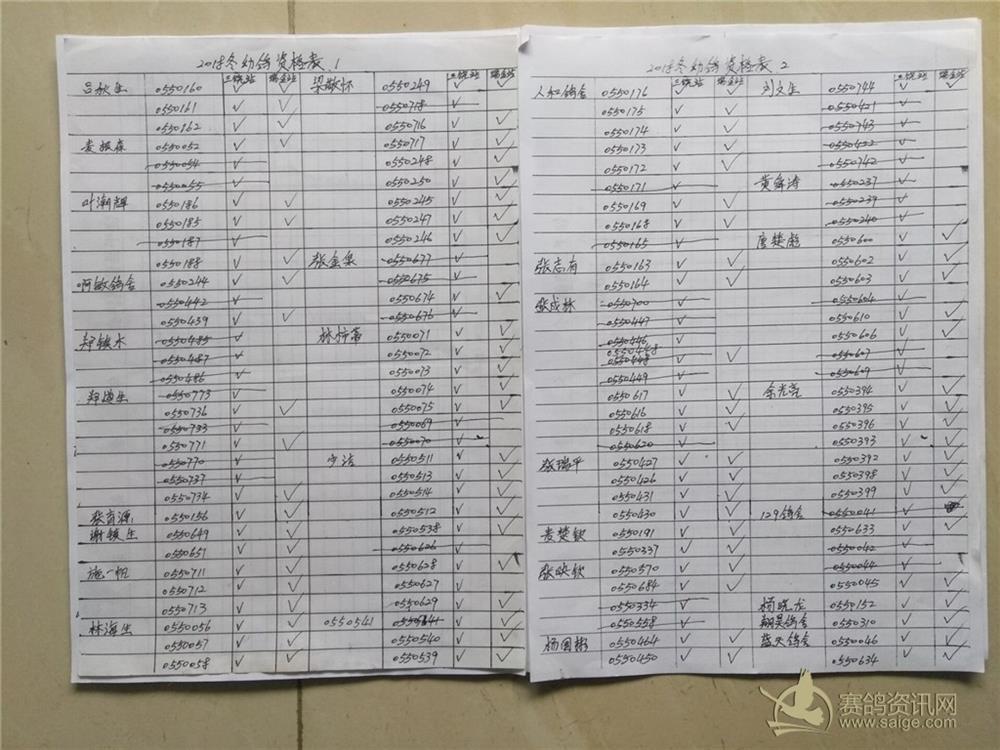 2018冬幼鸽资格表 1
三饶站 瑞金站 三饶站 瑞金站
吕秋生 0550160 ✓ ✓ 梁敬怀 0550249 ✓ ✓
0550161 ✓ ✓ 0550718 ✓
0550162 ✓ ✓ 0550716 ✓ ✓
黄振森 0550052 ✓ ✓ 0550717 ✓ ✓
0550054 ✓ 0550248 ✓ ✓
0550055 ✓ 0550250 ✓ ✓
叶潮辉 0550186 ✓ ✓ 0550245 ✓ ✓
0550185 ✓ ✓ 0550247 ✓ ✓
0550187 ✓ 0550246 ✓ ✓
0550188 ✓ ✓ 张金泉 0550677 ✓
阿敏鸽舍 0550244 ✓ ✓ 0550675 ✓
0550442 ✓ 0550674 ✓ ✓
0550439 ✓ ✓ 0550676 ✓
郑镇木 0550485 ✓ 0550071 ✓ ✓
0550487 ✓ 0550072 ✓ ✓
0550486 ✓ 0550073 ✓ ✓
0550773 ✓ 0550074 ✓ ✓
0550736 ✓ ✓ 0550075 ✓ ✓
0550733 ✓ 0550069 ✓
0550771 ✓ ✓ 0550070 ✓
0550770 ✓ 宁洁 0550511 ✓ ✓
0550737 ✓ 0550513 ✓ ✓
0550734 ✓ ✓ 0550514 ✓ ✓
张育源 0550156 ✓ ✓ 0550512 ✓ ✓
谢镇生 0550649 ✓ ✓ 0550538 ✓ ✓
0550651 ✓ ✓ 0550626 ✓
施一帆 0550711 ✓ ✓ 0550628 ✓ ✓
0550712 ✓ ✓ 0550627 ✓ ✓
0550713 ✓ ✓ 0550629 ✓ ✓
林海生 0550056 ✓ ✓ 0550541 0550641 ✓ ✓
0550057 ✓ ✓ 0550540 ✓ ✓
0550058 ✓ ✓ 0550539 ✓ ✓
2018冬幼鸽资格表 2
三饶站 瑞金站 三饶站 瑞金站
人和鸽舍 0550176 ✓ ✓ 刘文生 0550744 ✓ ✓
0550175 ✓ ✓ 0550421 ✓
0550174 ✓ ✓ 0550743 ✓
0550173 ✓ ✓ 0550422 ✓
0550172 ✓ ✓ 0550742 ✓
0550171 ✓ 黄舜涛 0550237 ✓
0550169 ✓ ✓ 0550239 ✓
0550168 ✓ ✓ 0550240 ✓
0550165 ✓ 唐楚彪 0550600 ✓ ✓
张志南 0550163 ✓ ✓ 0550602 ✓ ✓
0550164 ✓ ✓ 0550603 ✓ ✓
张成林 0550700 ✓ 0550604 ✓
0550447 ✓ 0550610 ✓ ✓
0550446 ✓ 0550606 ✓ ✓
0550448 ✓ ✓ 0550607 ✓
0550449 ✓ 0550609 ✓
0550617 ✓ ✓ 余光亮 0550394 ✓ ✓
0550616 ✓ ✓ 0550395 ✓ ✓
0550618 ✓ ✓ 0550396 ✓ ✓
0550620 ✓ 0550393 ✓ ✓
张瑞平 0550427 ✓ ✓ 0550392 ✓ ✓
0550426 ✓ ✓ 0550398 ✓ ✓
0550431 ✓ ✓ 0550399 ✓ ✓
0550430 ✓ ✓ 129鸽舍 0550041 ✓
黄楚钦 0550191 ✓ ✓ 0550633 ✓ ✓
0550337 ✓ ✓ 0550042 ✓
张映钦 0550570 ✓ ✓ 0550044 ✓
0550684 ✓ ✓ 0550045 ✓ ✓
0550334 ✓ 杨晓龙 0550152 ✓ ✓
0550558 ✓ 翔昊鸽舍 0550310 ✓ ✓
杨国彬 0550464 ✓ ✓ 蓝天鸽舍 0550046 ✓ ✓
0550450 ✓ ✓ 0550634 ✓ ✓
赛鸽资讯网
www.saige.com